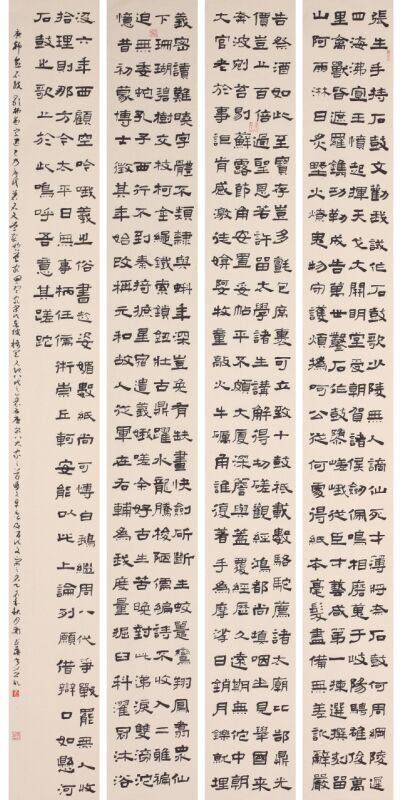 張生手持石鼓文勸我試作石鼓歌少陵無人謫仙死才薄將奈石鼓何周綱陵遲
四海沸宣王憤起揮天戈大開明堂受朝賀諸侯劍佩鳴相磨蒐于岐陽騁雄俊萬
里禽獸皆遮羅鐫功勒成告萬世鑿石作鼓隳嵯峨從臣才藝咸第一揀選撰刻留
山阿雨淋日炙野火燎鬼物守護煩撝呵公從何處得紙本毫髮盡備無差訛辭嚴
義密讀難曉字體不類隸與蝌年深豈免有缺畫快劍斫斷生蛟鼉鸞翔鳳翥眾仙
下珊瑚碧樹交枝柯金繩鐵索鎖鈕壯古鼎躍水龍騰梭陋儒編詩不收入二雅褊
迫無委蛇孔子西行不到秦掎摭星宿遺羲娥嗟余好古生苦晚對此涕淚雙滂沱
憶昔初蒙博士徵其年始改稱元和故人從軍在右輔為我度量掘臼科濯冠沐浴
告祭酒如此至寶存豈多氈包席裹可立致十鼓祇載數駱駝薦諸太廟比郜鼎光
價豈止百倍過聖恩若許留太學諸生講解得切磋觀經鴻都尚填咽坐見舉國來
奔波剜苔剔蘚露節角安置妥帖平不頗大廈深簷與蓋覆經歷久遠期無佗中朝
大官老於事詎肯感激徒媕婀牧童敲火牛礪角誰復著手為摩挲日銷月鑠就埋
沒六年西顧空吟哦羲之俗書趁姿媚數紙尚可博白鵝繼周八代爭戰罷無人收
拾理則那方今太平日無事柄任儒術崇丘軻安能以此上論列願借辯口如懸河
石鼓之歌止於此嗚呼吾意其蹉跎